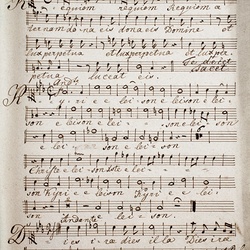 Requiem requiem Requiem æ
ternam dona eis dona eis Domine et
lux perpetua et lux perpetua et lux per
Te decet
petua luceat eis. tacet
Kyrie e lei son e leison e lei
son e leison e lei son e leison
e lei son e lei son.
Christe eleison
son Kyrie e leison Kyrie e lei
son e lei son.
Andante
Dies iræ dies illa Dies iræ